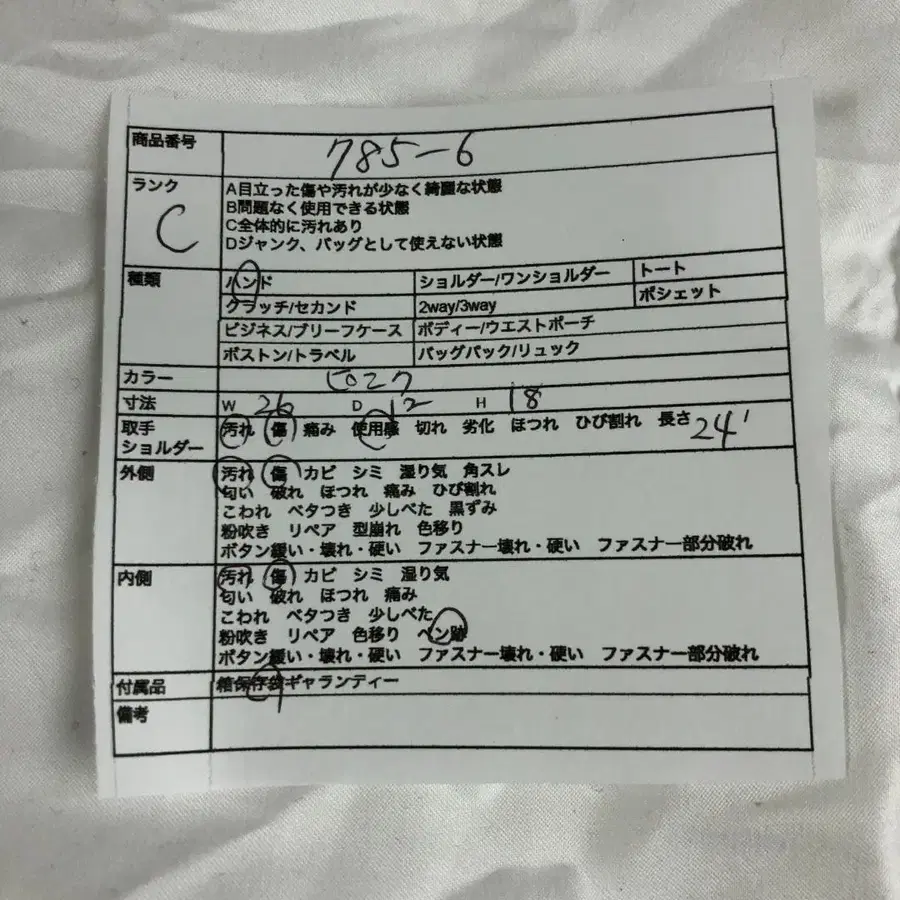 商品番号 785-6
ランク C
A目立った傷や汚れが少なく綺麗な状態
B問題なく使用できる状態
C全体的に汚れあり
Dジャンク、バッグとして使えない状態
種類 ハンド ショルダー/ワンショルダー トート
クラッチ/セカンド 2way/3way ポシェット
ビジネス/ブリーフケース ボディー/ウエストポーチ
ボストン/トラベル バッグパック/リュック
カラー
寸法 W 26 D 12 H 18
取手 汚れ 傷 痛み 使用感 切れ 劣化 ほつれ ひび割れ 長さ 24
ショルダー
外側 汚れ 傷 カビ シミ 湿り気 角スレ
匂い 破れ ほつれ 痛み ひび割れ
こわれ ベタつき 少しべた 黒ずみ
粉吹き リペア 型崩れ 色移り
ボタン緩い・壊れ・硬い ファスナー壊れ・硬い ファスナー部分破れ
内側 汚れ 傷 カビ シミ 湿り気
匂い 破れ ほつれ 痛み
こわれ ベタつき 少しべた
粉吹き リペア 色移り ペン跡
ボタン緩い・壊れ・硬い ファスナー壊れ・硬い ファスナー部分破れ
付属品 箱保存袋ギャランティー
備考